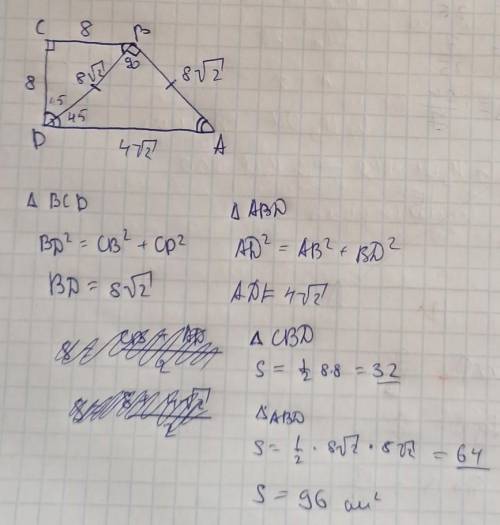 C 8 B
8 8√2 90 8√2
45 45
D 4√2 A
Δ BCD
BD² = CB² + CD²
BD = 8√2
Δ ABD
AD² = AB² + BD²
AD = 4√2
Δ CBD
S = ½ 8·8 = 32
Δ ABD
S = ½ · 8√2 · 8√2 = 64
S = 96 см²